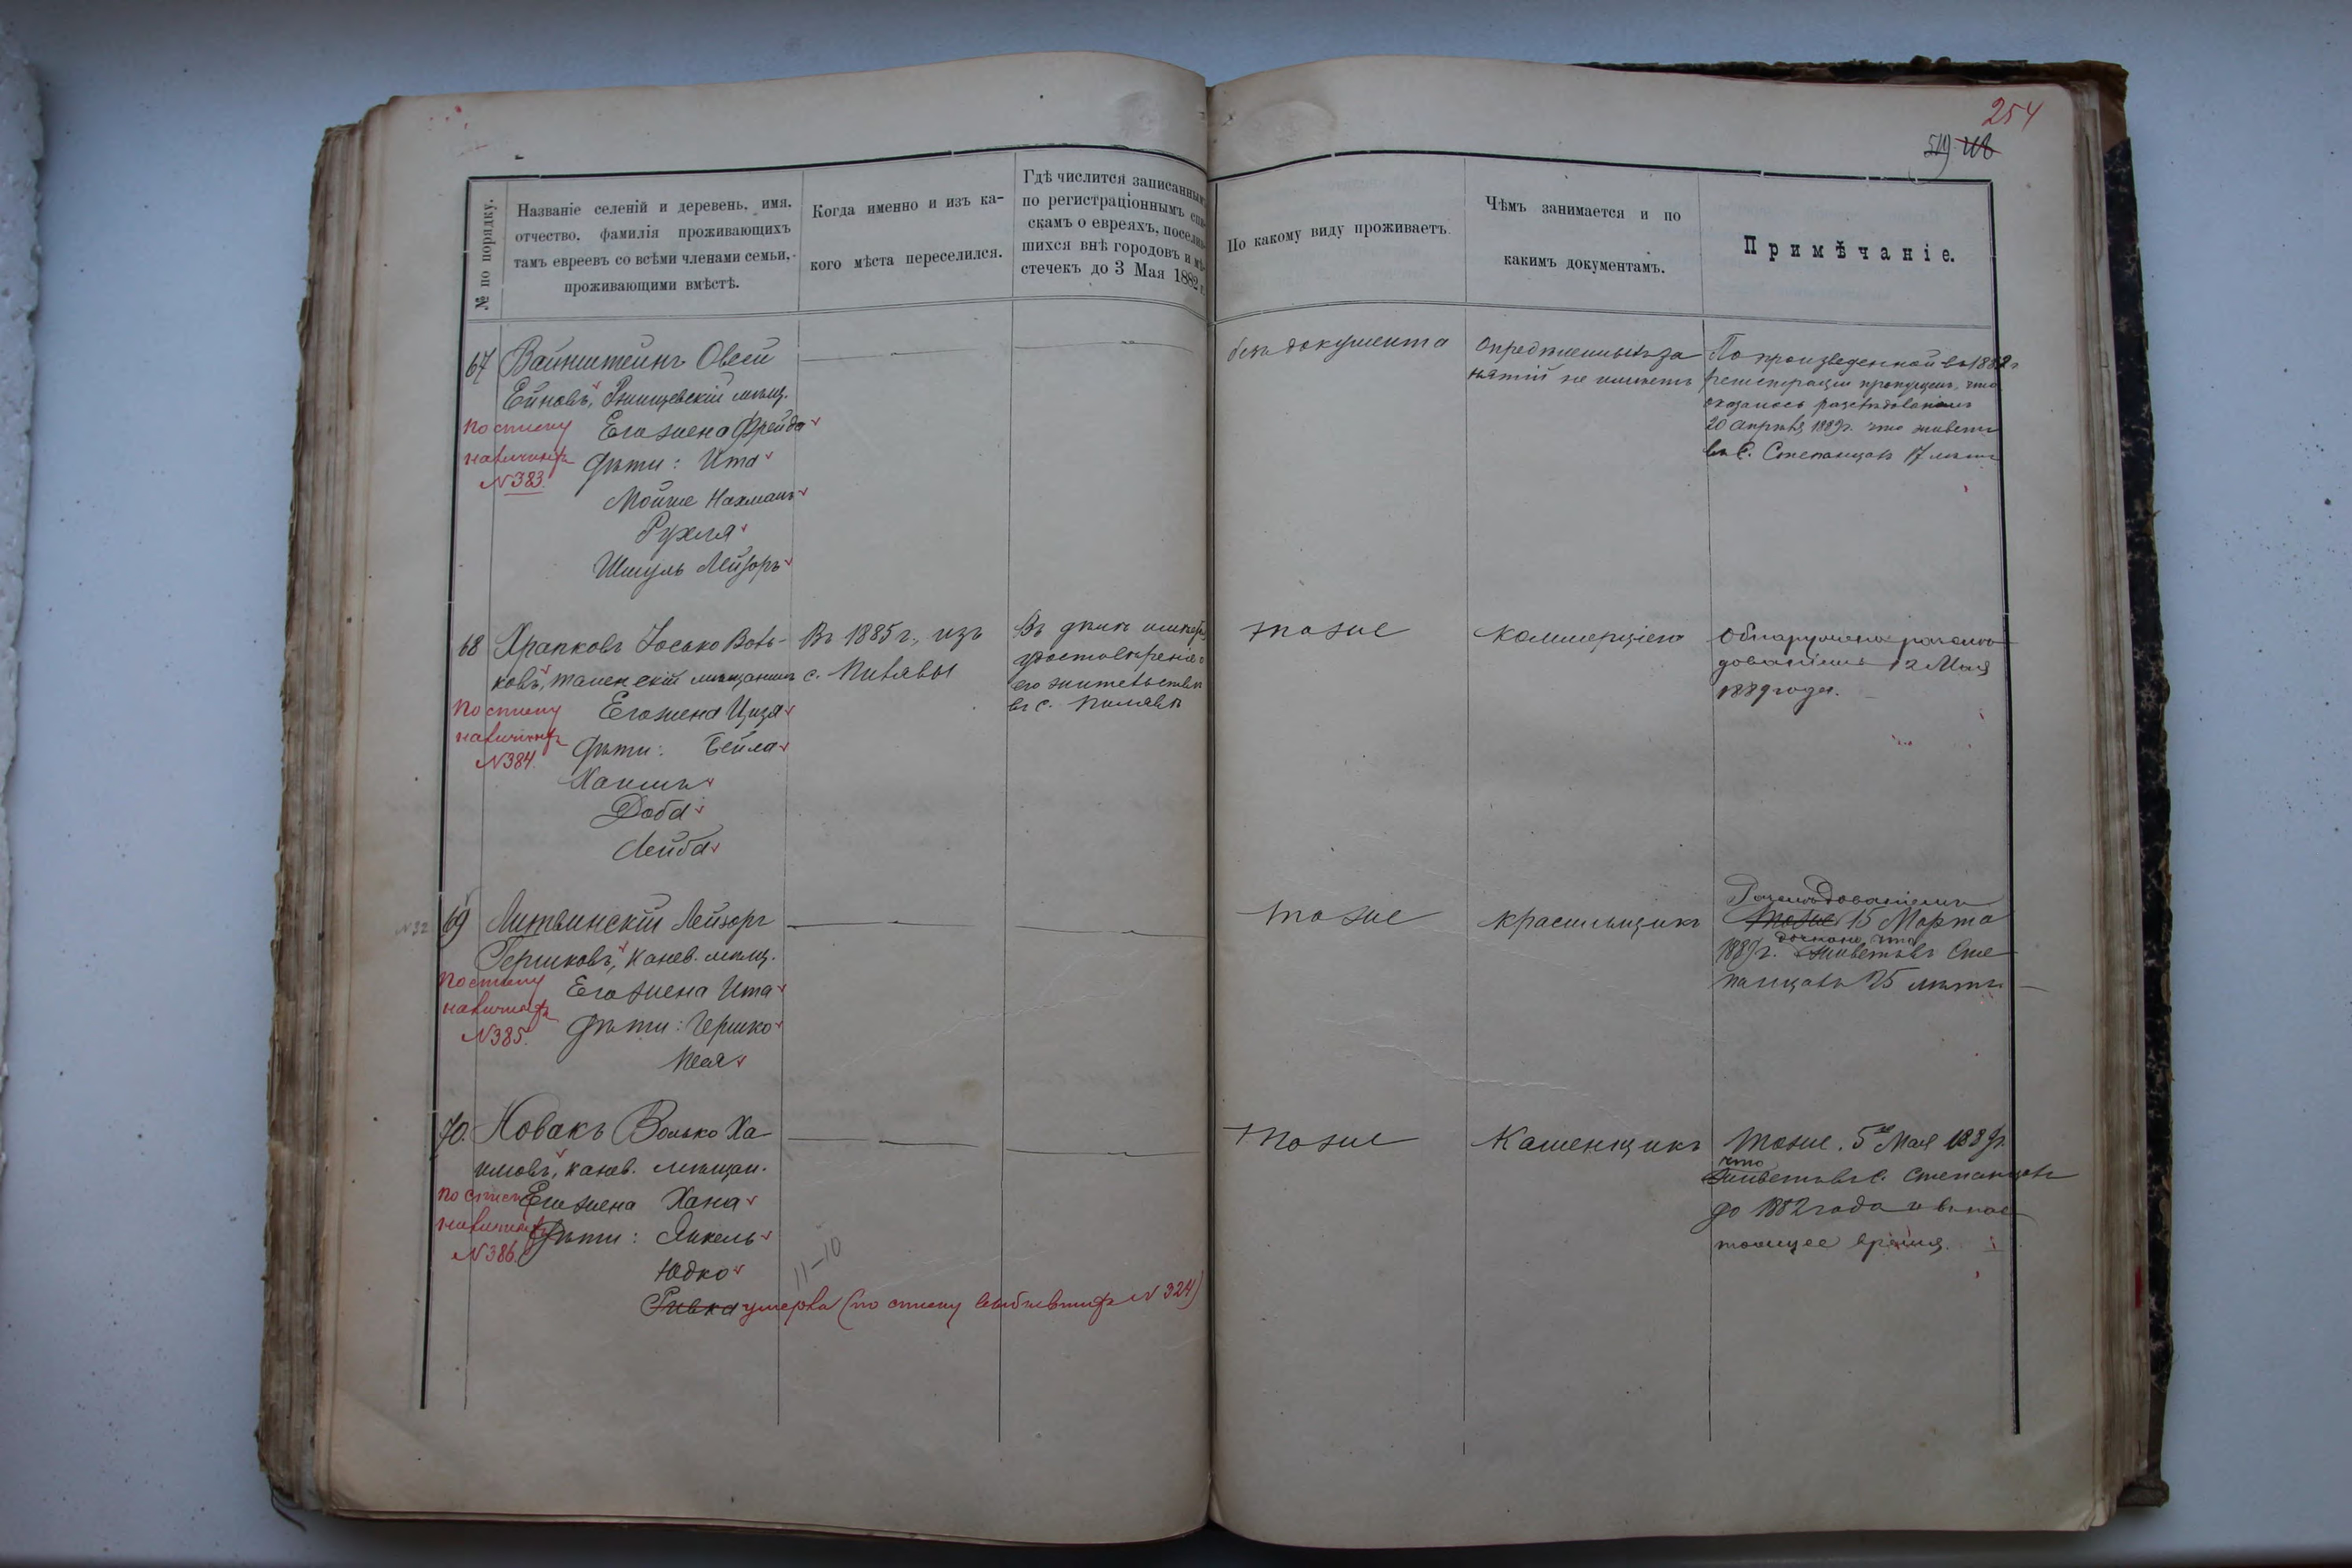 254
519
№ по порядку.
Названіе селеній и деревень, имя,
отчество, фамилія проживающихъ
тамъ евреевъ со всѣми членами семьи,
проживающими вмѣстѣ.
Когда именно и изъ ка-
кого мѣста переселился.
Гдѣ числится записаннымъ
по регистраціоннымъ спи-
скамъ о евреяхъ, поселив-
шихся внѣ городовъ и мѣ-
стечекъ до 3 Мая 1882 г.
По какому виду проживаетъ.
Чѣмъ занимается и по
какимъ документамъ.
Примѣчаніе.
67 Вайнштейнъ Овсей
Ейновъ, мѣщ.
По списку Его жена Фрейда
наличныхъ Дѣти: Ита
№ 383.
Мойше Нахманъ
Рухля
Шмуль Лейзоръ
безъ документа
Опредѣленныхъ за
нятій не имѣетъ
По произведенной въ 1882 г
регистраціи пропущенъ, что
оказалось разслѣдованіемъ
20 апрѣля 1889 г. что живетъ
въ с. Степанцахъ 17 лѣтъ
68 Храпковъ Іосько Воль-
ковъ, мѣщанинъ
По списку Его жена Цизя
наличныхъ Дѣти: Бейла
№ 384.
Хаимъ
Доба
Лейба
Въ 1885 г., изъ
с. Пилявы
Въ дѣлѣ имѣется
удостовѣреніе о
его жительствѣ
въ с. Пилявѣ
тоже
коммерціею
Обнаружено разслѣ
дованіемъ 12 Мая
1889 года.
№ 32
69 Литвинскій Лейзоръ
Гершковъ, Канев. мѣщ.
По списку Его жена Ита
наличныхъ Дѣти: Гершко
№ 385.
Песя
тоже
красильщикъ
Разслѣдованіемъ
тоже 15 Марта
дознано, что
1889 г. живетъ въ Сте
панцахъ 25 лѣтъ
70. Новакъ Волько Ха
имовъ, Канев. мѣщан.
По списк Его жена Хана
наличныхъ Дѣти: Янкель
№ 386.
Юдко
11-10
Ривка умерла (по списку выбывшихъ № 324)
тоже
Каменщикъ
Тоже. 5го Мая 1889 г.
что
живетъ въ с. Степанцахъ
до 1882 года и въ нас
тоящее время.